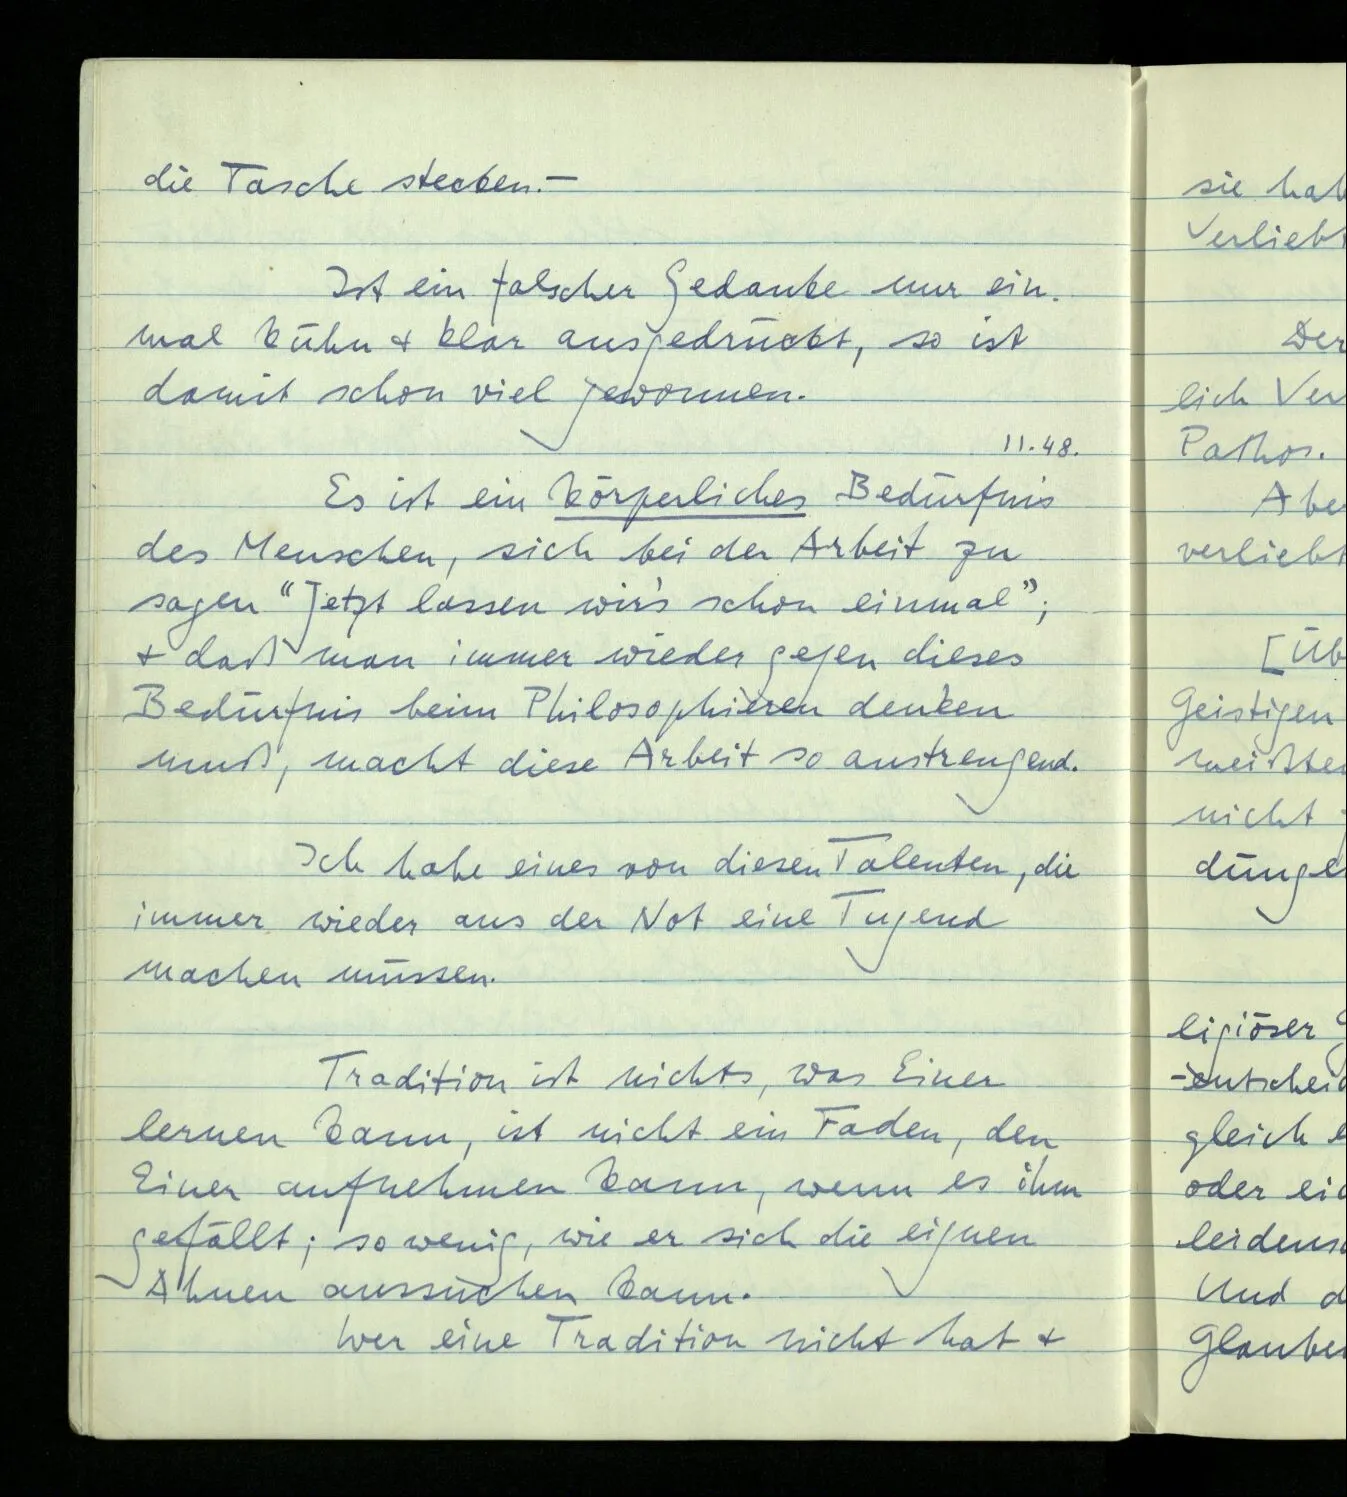 die Tasche stecken.—
Ist ein falscher Gedanke nur ein-
mal kühn & klar ausgedrückt, so ist
damit schon viel gewonnen.
11.48.
Es ist ein körperliches Bedürfnis
des Menschen, sich bei der Arbeit zu
sagen “Jetzt lassen wir's schon einmal”;
& daß man immer wieder gegen dieses
Bedürfnis beim Philosophieren denken
muß, macht diese Arbeit so anstrengend.
Ich habe eines von diesen Talenten, die
immer wieder aus der Not eine Tugend
machen müssen.
Tradition ist nichts, was Einer
lernen kann, ist nicht ein Faden, den
Einer aufnehmen kann, wenn es ihm
gefällt; so wenig, wie er sich die eignen
Ahnen aussuchen kann.
Wer eine Tradition nicht hat &
sie hab
Verliebt
Der
lich Ver
Pathos.
Abe
verliebt
[Üb
Geistigen
meißten
nicht
dünge
ligiöser G
-entscheid
gleich e
oder eid
leidens
Und d
Glauben